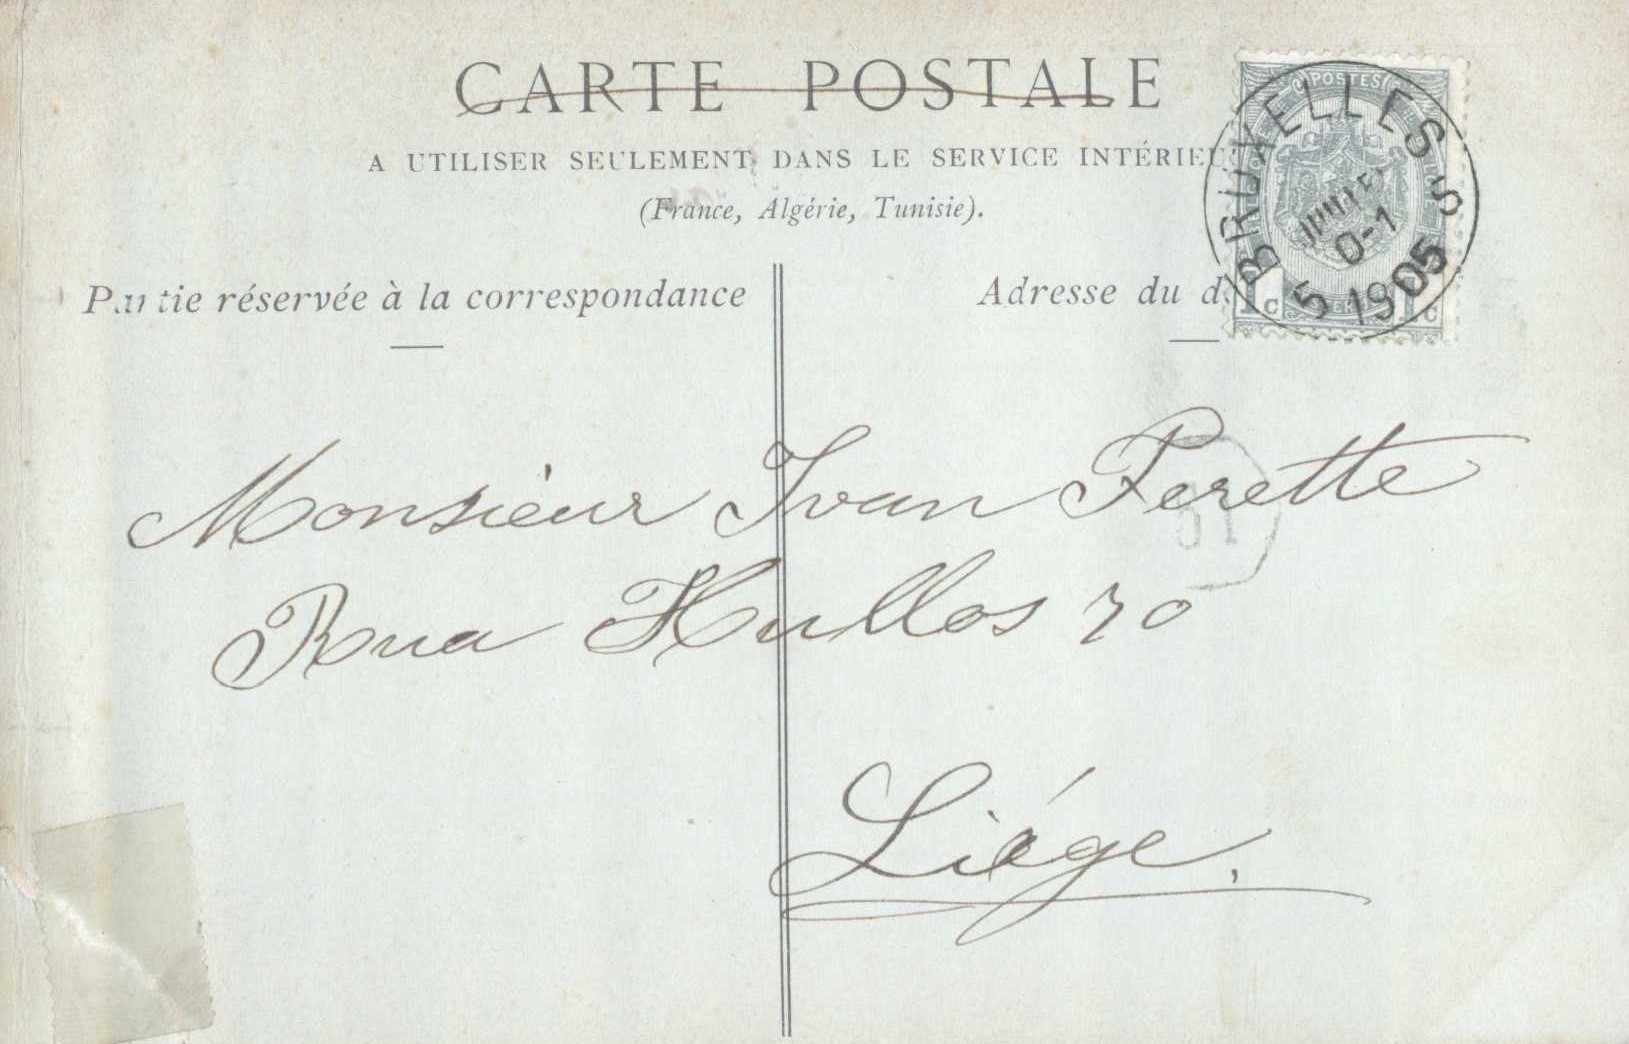 CARTE POSTALE
A UTILISER SEULEMENT DANS LE SERVICE INTÉRIEU
(France, Algérie, Tunisie).
Partie réservée à la correspondance
Adresse du d
POSTES
1c 1c
BRUXELLES
JUILLE
0-1
5 1905
Monsieur Ivan Perette
Rua Hullos 70
Liége.